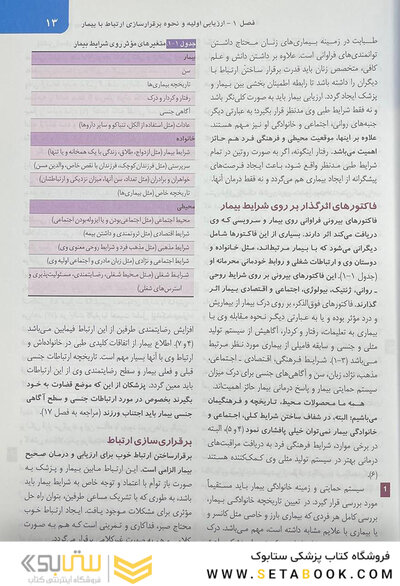 فصل ۱ - ارزیابی اولیه و نحوه برقرارسازی ارتباط با بیمار
۱۳
طبابت در زمینه بیماری‌های زنان محتاج داشتن
توانمندی‌های فراوانی است. علاوه بر داشتن دانش و علم
کافی، متخصص زنان باید قدرت برقرار ساختن ارتباط با
دیگران را داشته باشد تا رابطه اطمینان بخشی بین بیمار و
پزشک ایجاد گردد. ارزیابی بیمار باید به صورت کلی‌نگر باشد
و نه فقط شرایط طبی وی مدنظر قرار بگیرد؛ به عبارتی دیگر
جنبه‌های روانی، اجتماعی و خانوادگی او نیز مهم هستند.
علاوه بر اینها، موقعیت محیطی و فرهنگی فرد هم حائز
اهمیت می‌باشد. رفتار اینگونه، اگر به صورت روتین در تمام
شرایط طبی مدنظر واقع شود، باعث ایجاد فرصت‌های
پیشگرانه از ایجاد بیماری هم می‌گردد و نه فقط درمان آنها.
فاکتورهای اثرگذار بر روی شرایط بیمار
فاکتورهای بیرونی فراوانی روی بیمار و سرویسی که وی
دریافت می‌کند اثر دارند. بسیاری از این فاکتورها شامل
دیگرانی می‌شود که با بیمار مرتبط‌اند، مثل خانواده و
دوستان وی و ارتباطات شغلی و روابط خودمانی محرمانه او
(جدول ۱-۱). این فاکتورهای بیرونی بر روی شرایط روحی
- روانی، ژنتیک، بیولوژی، اجتماعی و اقتصادی بیمار اثر
گذارند. فاکتورهای فوق‌الذکر، بر روی درک بیمار از بیماریش
و درد مؤثر بوده و یا به عبارتی دیگر نحوه مقابله وی با
بیماری به تعلیمات، رفتار و کردار، آگاهیش از سیستم تولید
مثلی و جنسی و سابقه فامیلی از بیماری مورد نظر مرتبط
می‌باشد (۳-۱). شرایط فرهنگی، اقتصادی - اجتماعی،
مذهب، نژاد، زبان، سن و آگاهی‌های جنسی برای درک میزان
سیستم حمایتی بیمار و پاسخ درمانی بیمار حائز اهمیت‌اند.
همه ما محصولات محیط، تاریخچه و فرهنگمان
می‌باشیم؛ البته، در شفاف ساختن شرایط کلی، اجتماعی و
خانوادگی بیمار نمی‌توان خیلی پافشاری نمود (۴ و ۵). البته
در برخی موارد، شرایط فرهنگی فرد به دریافت مراقبت‌های
درمانی بهتر در سیستم تولید مثلی وی کمک‌کننده هستند
(۶).
1
سیستم حمایتی و زمینه خانوادگی بیمار باید مستقیماً
مورد بررسی قرار گیرد. در تعیین تاریخچه خانوادگی بیمار،
بررسی کامل هر فردی که بیماری بارز و خاصی مثل کانسر و
یا بیماری با علایم مشابه داشته است، مهم می‌باشد. درک
جدول ۱-۱ متغیرهای مؤثر روی شرایط بیمار
بیمار
سن
تاریخچه بیماری‌ها
رفتار و کردار و درک
آگاهی جنسی
عادات (مثل استفاده از الکل، تنباکو و سایر داروها)
خانواده
شرایط بیمار (مثل ازدواج، طلاق، زندگی با یک همخانه و یا تنها)
سرپرستی (مثل فرزندان کوچک، فرزندان با نقص خاص، والدین مسن)
خواهران و برادران (مثل تعداد، سن آنها، میزان نزدیکی و ارتباطشان)
تاریخچه خاص (مثل بیماری‌ها)
محیطی
محیط اجتماعی (مثل اجتماعی‌بودن و یا ایزوله‌بودن اجتماعی)
شرایط اقتصادی (مثل ثروتمندی و داشتن بیمه)
شرایط مذهبی (مثل مذهب فرد و شرایط روحی معنوی وی)
شرایط اجتماعی و نژادی (مثل زبان مادری و شرایط اجتماعی اولیه وی)
شرایط شغلی (مثل محیط شغلی، رضایتمندی، مسئولیت‌پذیری و
استرس‌های شغلی)
افزایش رضایتمندی طرفین از این ارتباط فیمابین می‌باشد
(۴ و ۷). اطلاع بیمار از اتفاقات کلیدی طبی در خانواده‌اش و
ارتباط وی با آنها بسیار مهم است. تاریخچه ارتباطات جنسی
قبلی و فعلی بیمار و سطح رضایتمندی وی از این ارتباطات
باید معین گردد. پزشکان از این که موضع قضاوت به خود
بگیرند بخصوص در مورد ارتباطات جنسی و سطح آگاهی
جنسی بیمار باید اجتناب ورزند (مراجعه به فصل ۱۷).
برقراری‌سازی ارتباط
برقرارساختن ارتباط خوب برای ارزیابی و درمان صحیح
بیمار الزامی است. این ارتباط مابین بیمار و پزشک به
صورت باز توأم با اعتماد و توجه خاص به شرایط بیمار باید
باشد، به طوری که با تشریک مساعی طرفین، بتوان راه حل
مؤثری برای مشکلات موجود یافت. ایجاد ارتباط خوب
محتاج صبر، فداکاری و تمرینی است که هم به صورت
فروشگاه کتاب پزشکی ستابوک
WWW.SETABOOK.COM
ستابوک
فروشگاه اینترنتی کتاب